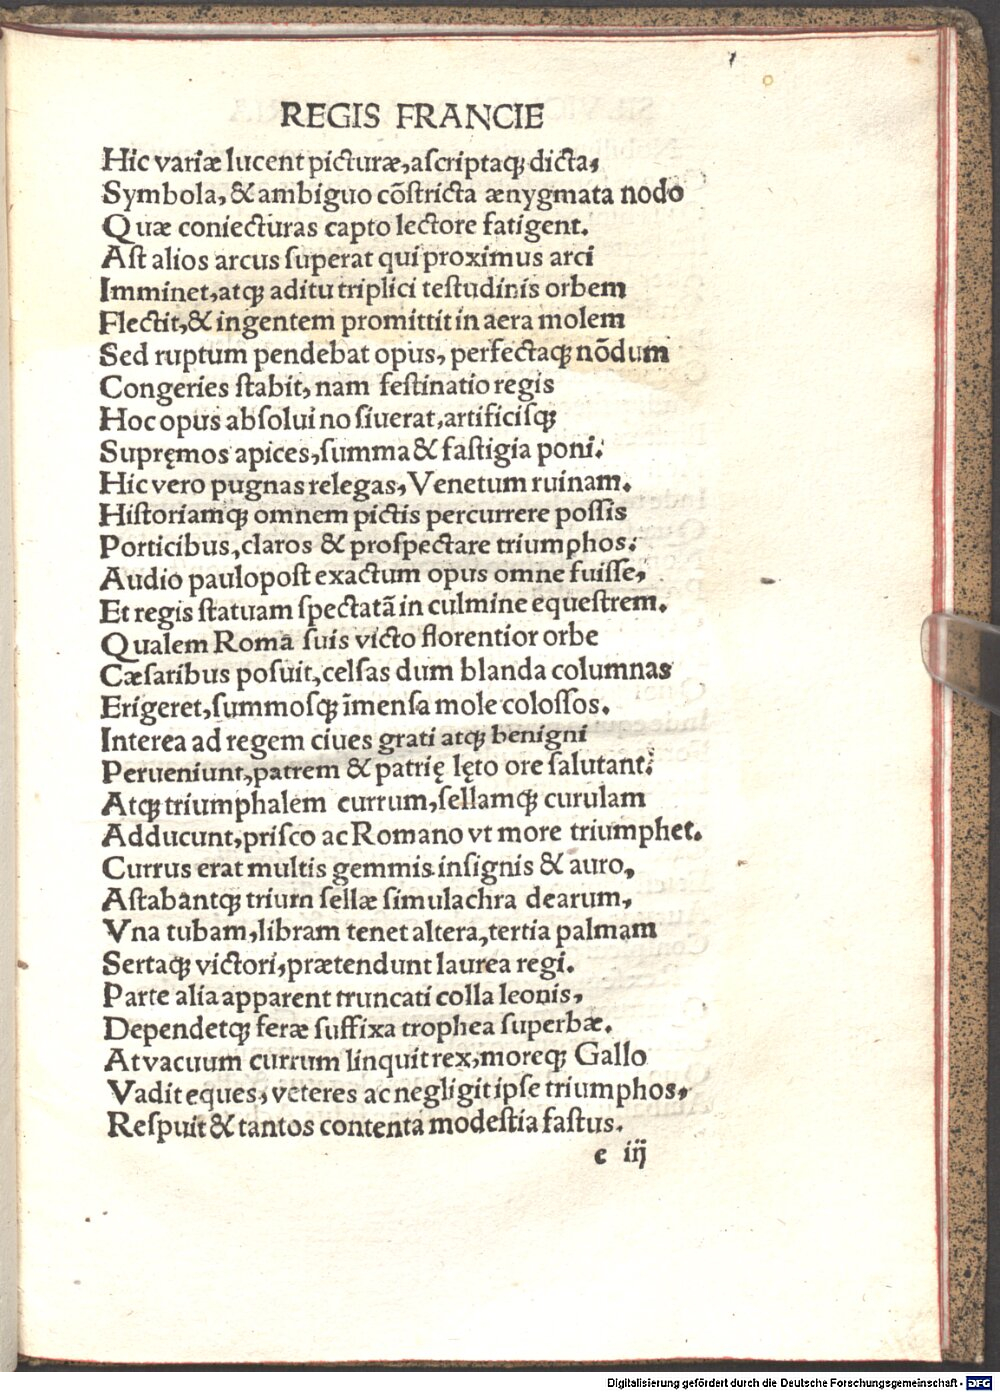 REGIS FRANCIE
Hic variæ lucent picturæ, aſcriptaqꝫ dicta,
Symbola, & ambiguo cõſtricta ænygmata nodo
Quæ coniecturas capto lectore fatigent.
Aſt alios arcus ſuperat qui proximus arci
Imminet, atqꝫ aditu triplici teſtudinis orbem
Flectit, & ingentem promittit in aera molem
Sed ruptum pendebat opus, perfectaqꝫ nõdum
Congeries ſtabit, nam feſtinatio regis
Hoc opus abſolui no ſiuerat, artificiſqꝫ
Supręmos apices, ſumma & faſtigia poni.
Hic vero pugnas relegas, Venetum ruinam.
Hiſtoriamqꝫ omnem pictis percurrere poſſis
Porticibus, claros & proſpectare triumphos.
Audio paulopoſt exactum opus omne fuiſſe,
Et regis ſtatuam ſpectatã in culmine equeſtrem.
Qualem Romã ſuis victo florentior orbe
Cæſaribus poſuit, celſas dum blanda columnas
Erigeret, ſummoſqꝫ ĩmenſa mole coloſſos.
Interea ad regem ciues grati atqꝫ benigni
Perueniunt, patrem & patrię lęto ore ſalutant.
Atqꝫ triumphalem currum, ſellamqꝫ curulam
Adducunt, priſco ac Romano vt more triumphet.
Currus erat multis gemmis inſignis & auro,
Aſtabantqꝫ trium ſellæ ſimulachra dearum,
Vna tubam, libram tenet altera, tertia palmam
Sertaqꝫ victori, prætendunt laurea regi.
Parte alia apparent truncati colla leonis,
Dependetqꝫ feræ ſuffixa trophea ſuperbæ.
At vacuum currum linquit rex, moreqꝫ Gallo
Vadit eques, veteres ac negligit ipſe triumphos,
Reſpuit & tantos contenta modeſtia faſtus.
e iij
Digitalisierung gefördert durch die Deutsche Forschungsgemeinschaft - DFG